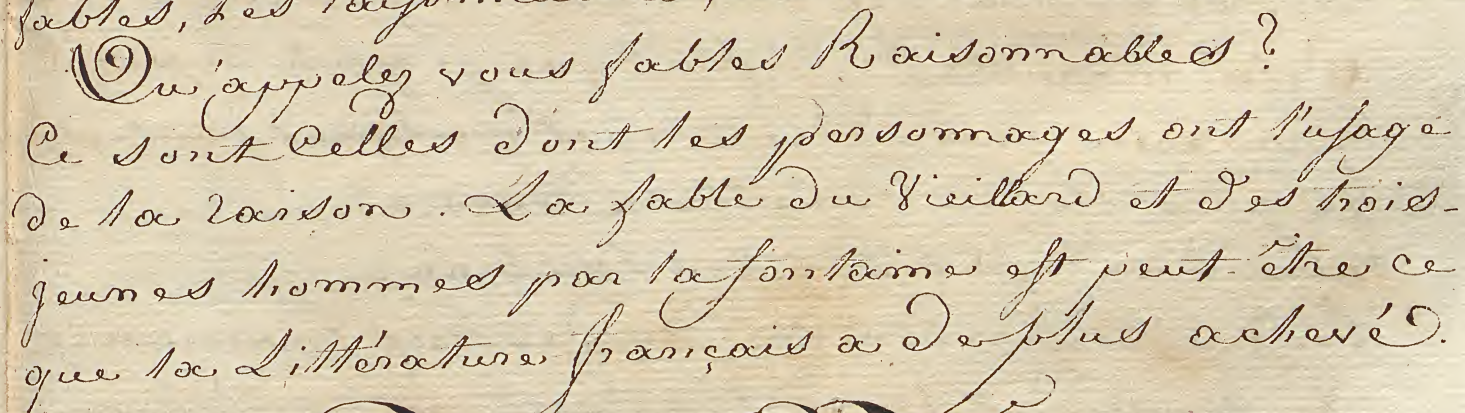 fables, les
Qu'appelez vous fables Raisonnables?
Ce sont Celles dont les personnages ont l'usage
de la raison. La fable du Vieillard et des trois-
jeunes hommes par la fontaine est peut-être ce
que la Littérature français a de plus achevé.